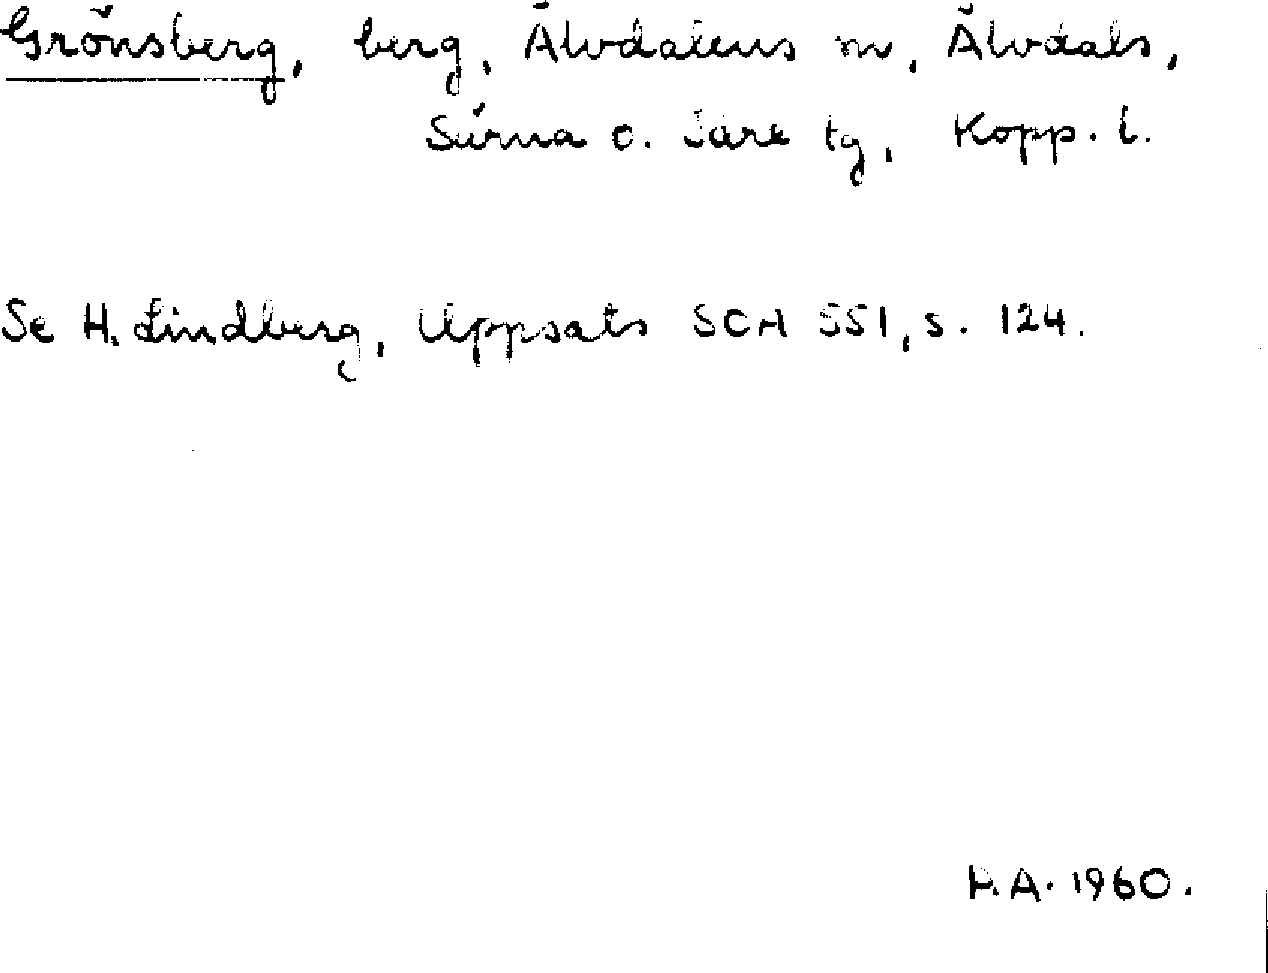 Grönsberg, berg, Älvdalens m, Älvdals,
Särna o. Idre tg, Kopp. l.
Se H. Lindberg, Uppsats SCH 551, s. 124.
H.A. 1960.